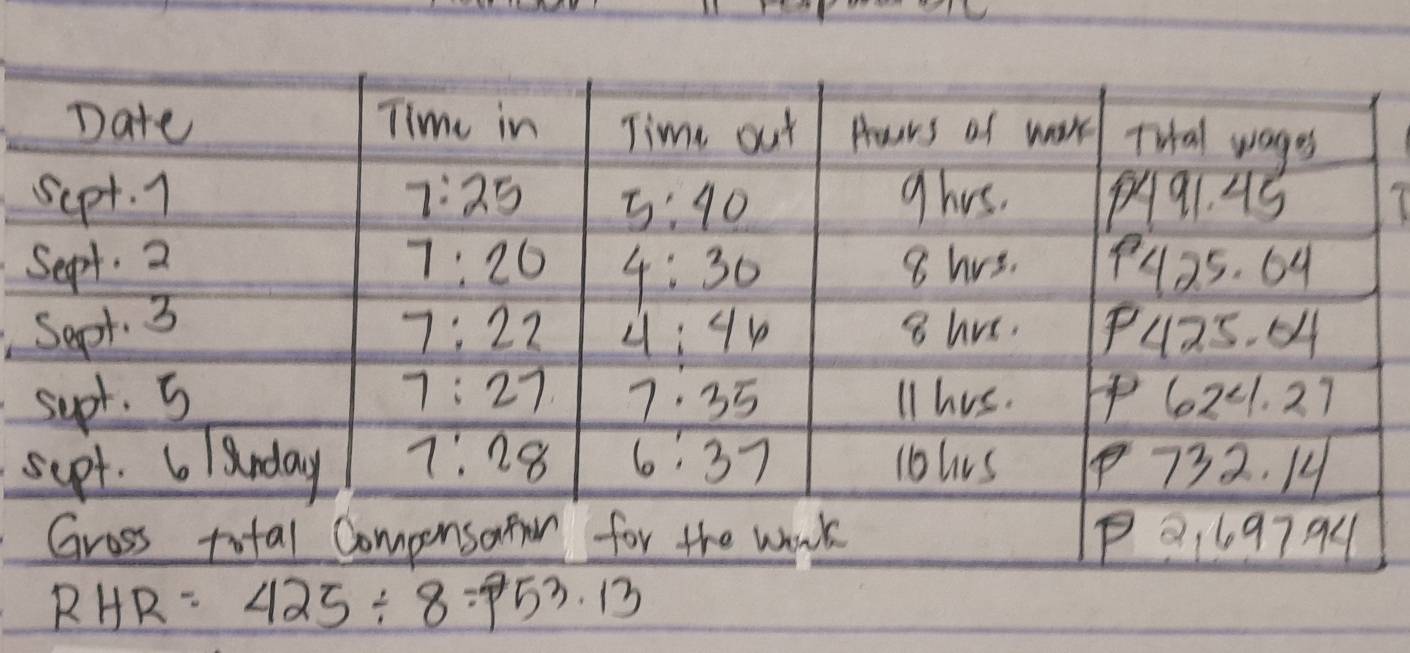 Date Time in Time out Hours of work Total wages
Sept. 1 7:25 5:40 9 hrs. ₱491.45
Sept. 2 7:20 4:30 8 hrs. ₱425.04
Sept. 3 7:22 4:46 8 hrs. ₱425.04
Sept. 5 7:27 7:35 11 hrs. ₱ 624.27
Sept. 6 / Sunday 7:28 6:37 10 hrs ₱ 732.14
Gross total Compensation for the work ₱ 2,697.94
RHR = 425 ÷ 8 = ₱53.13